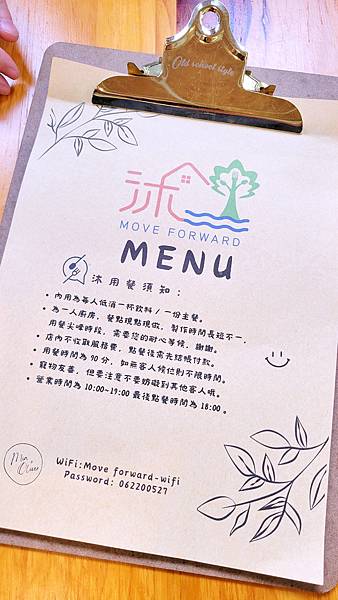 Old school style
沐
MOVE FORWARD
MENU
沐用餐須知：
• 內用為每人低消一杯飲料／一份主餐。
• 為一人廚房，餐點現點現做，製作時間長短不一，
用餐尖峰時段，需要您的耐心等候，謝謝。
• 店內不收取服務費，點餐後需先結帳付款。
• 用餐時間為 90 分，如無客人候位則不限時間。
• 寵物友善，但要注意不要妨礙到其他客人哦。
• 營業時間為 10:00~19:00 最後點餐時間為 18:00。
WiFi:Move forward-wifi
Password: 062200527